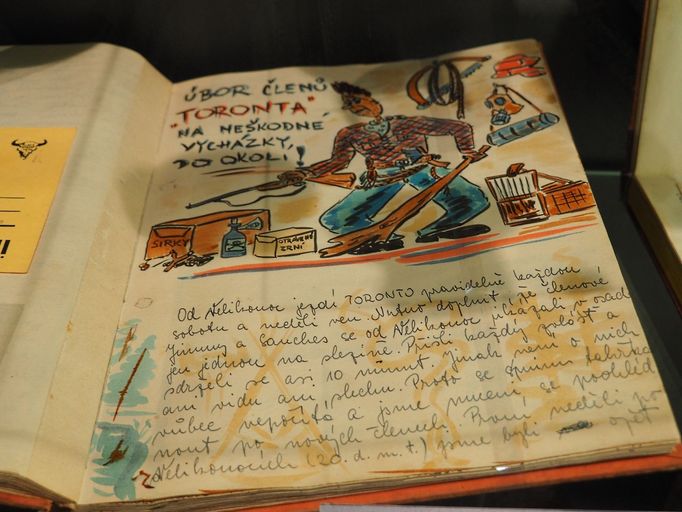 ÚBOR ČLENŮ
"TORONTA"
NA NEŠKODNÉ
VYCHÁZKY,
DO OKOLÍ!
SIRKY
OTRÁVENÉ
ZRNÍ
Od Velikonoc jezdí TORONTO pravidelně každou
sobotu a neděli ven. Nutno doplnit, že členové
Jimmy a Sanches se od Velikonoc ukázali v osadě
jen jednou na slezině. Přišli každý zvlášť a
zdrželi se asi 10 minut. Jinak není o nich
ani vidu ani slechu. Proto se s nimi
vůbec nepočítá a jsme nuceni se poohléd
nout po nových členech. První neděli po
Velikonocích (20. d. m. t.) jsme byli opět